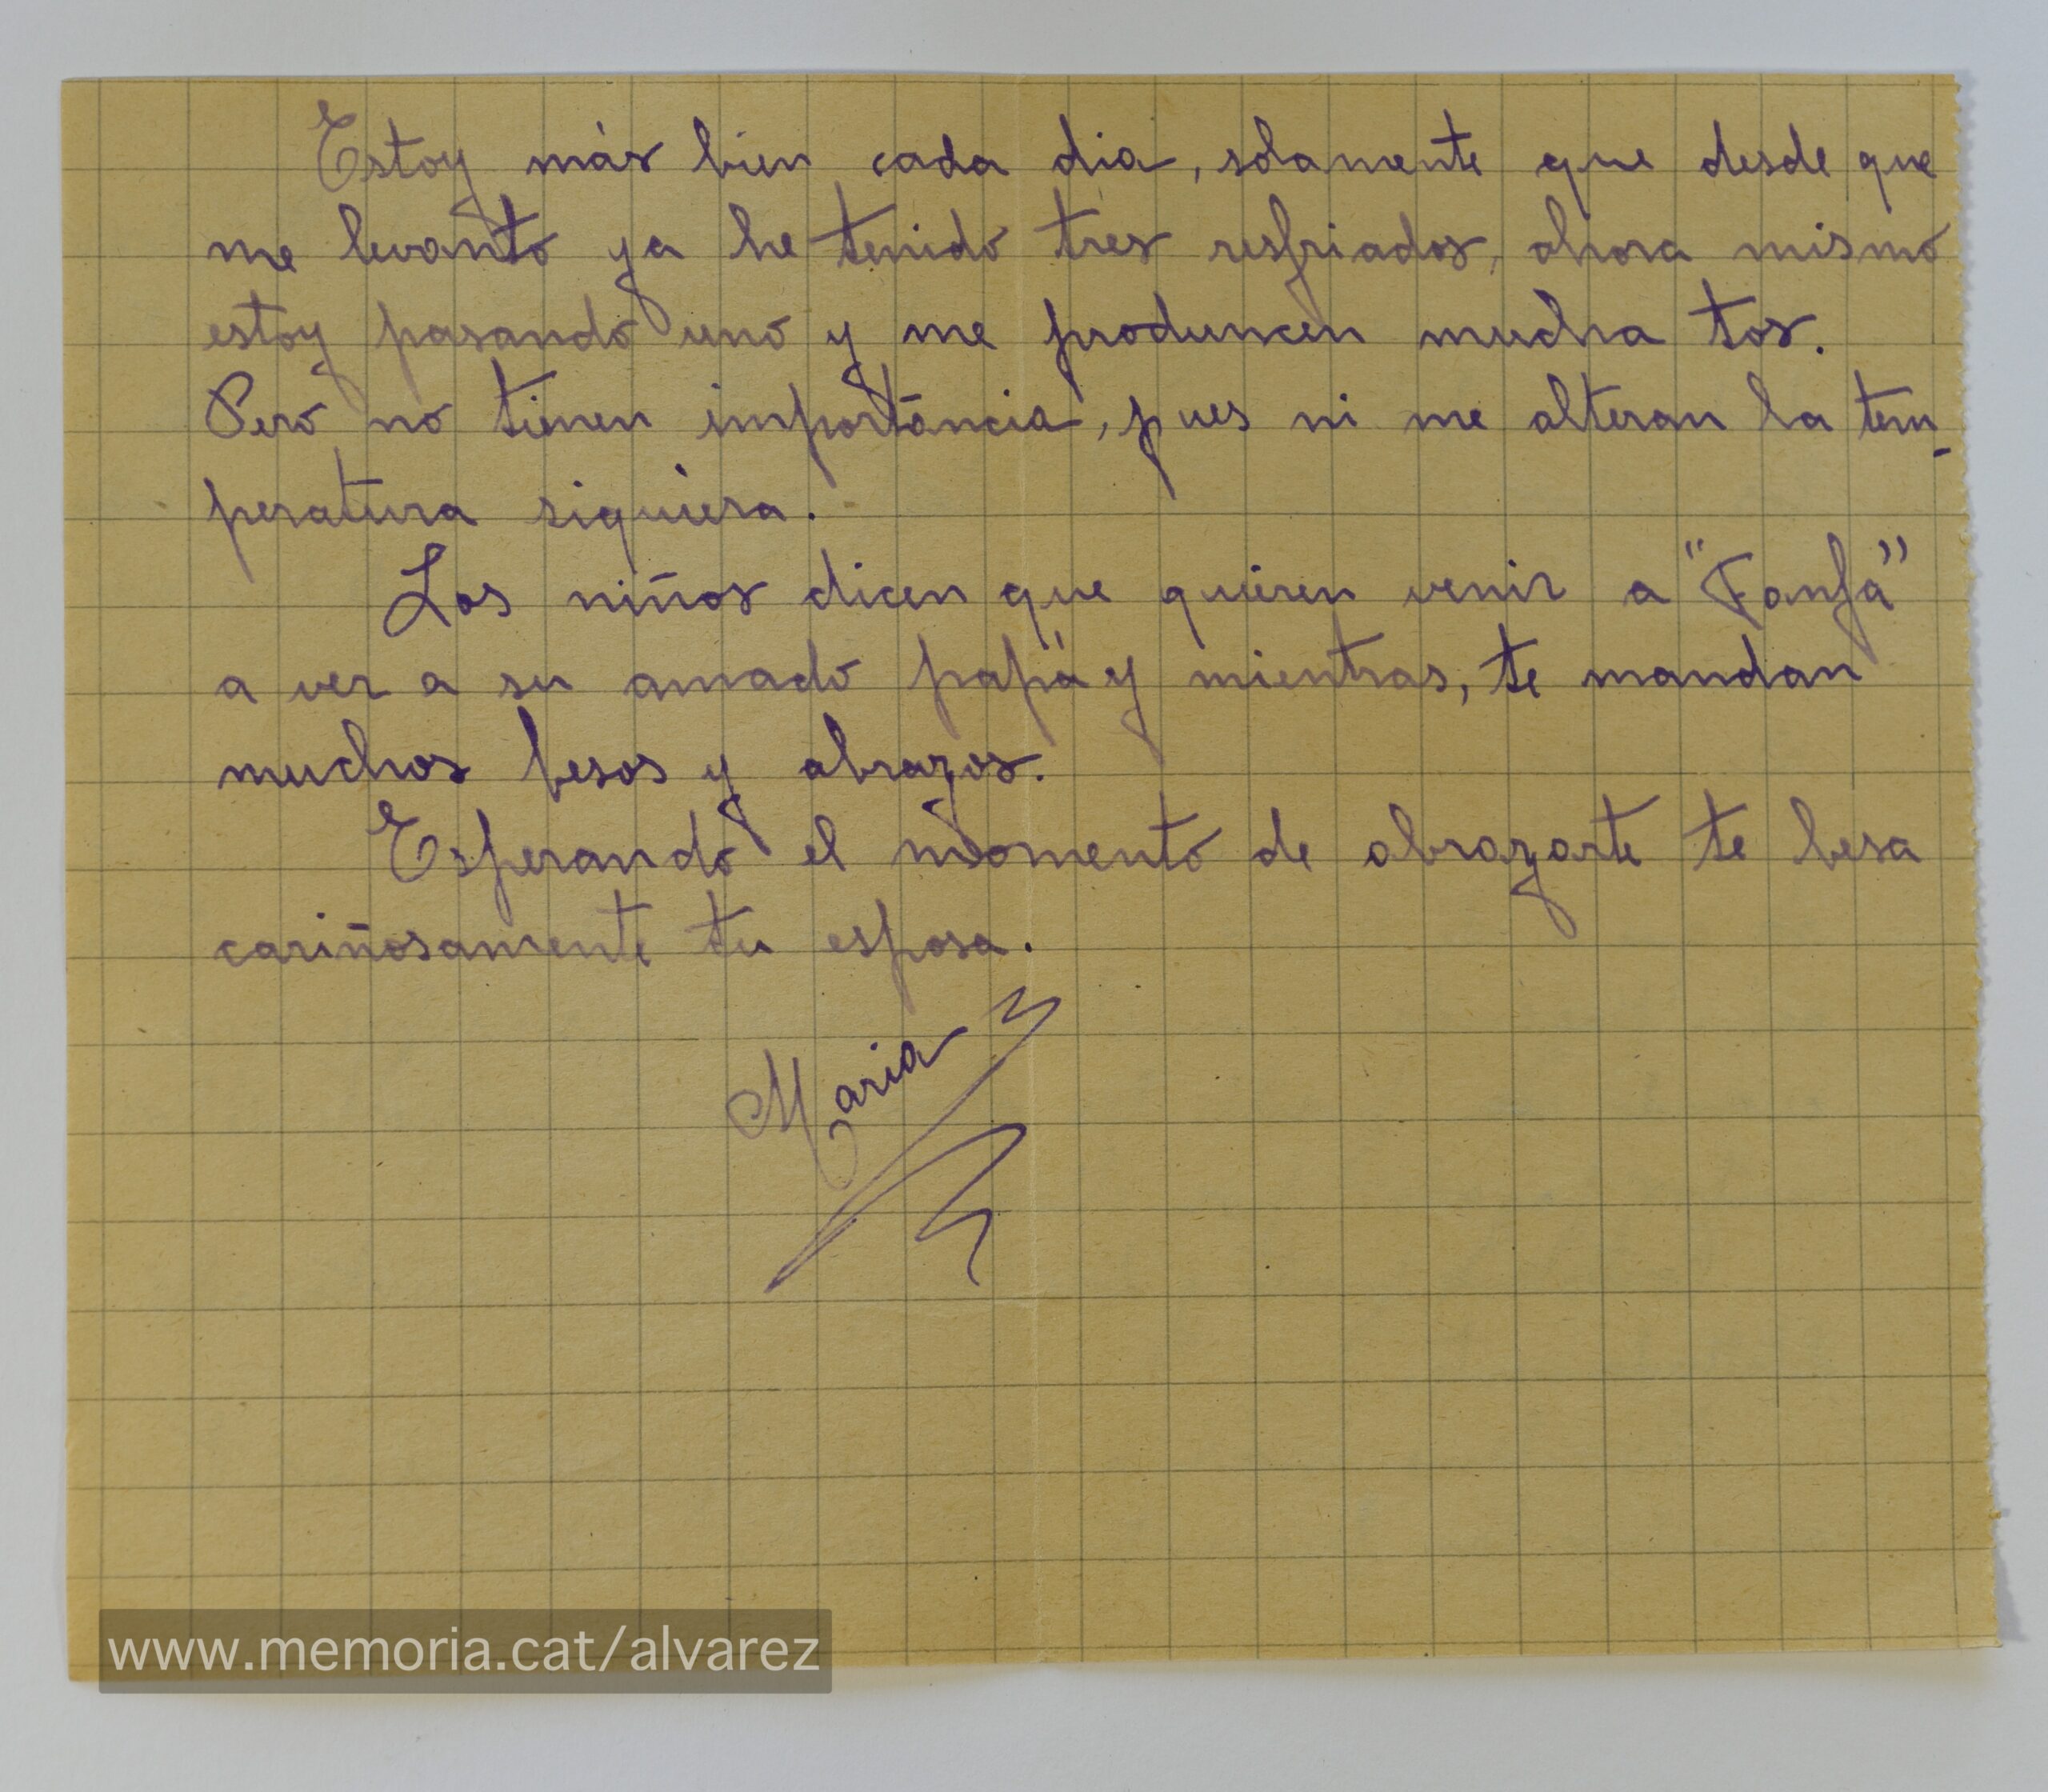 Estoy más bien cada dia, solamente que desde que
me levanto ya he tenido tres resfriados, ahora mismo
estoy pasando uno y me produncen mucha tos.
Pero no tienen importáncia, pues ni me alteran la tem-
peratura siquiera.
Los niños dicen que quieren venir a "Fanfá"
a ver a su amado papá y mientras, te mandan
muchos besos y abrazos.
Esperando el momento de abrazarte te besa
cariñosamente tu esposa.
Maria
www.memoria.cat/alvarez